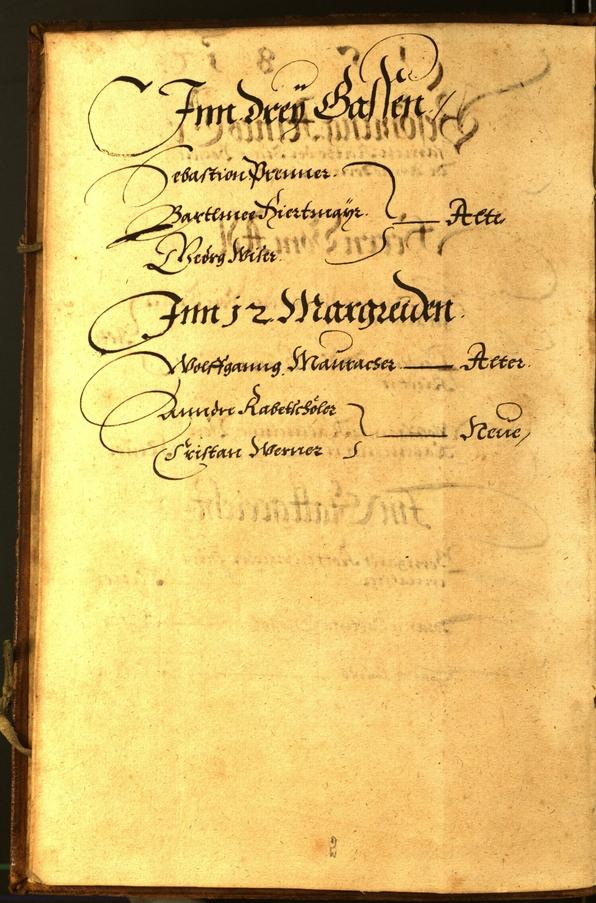 Inn dreÿ Gassen
Sebastion Prenner.
Bartlmee Hiertmaÿr. Alte
Georg Wiser
Inn 12 Margreüden.
Wolffganng Mauracher Alter.
Anndre Kabetschöler
Cristan Werner Neue